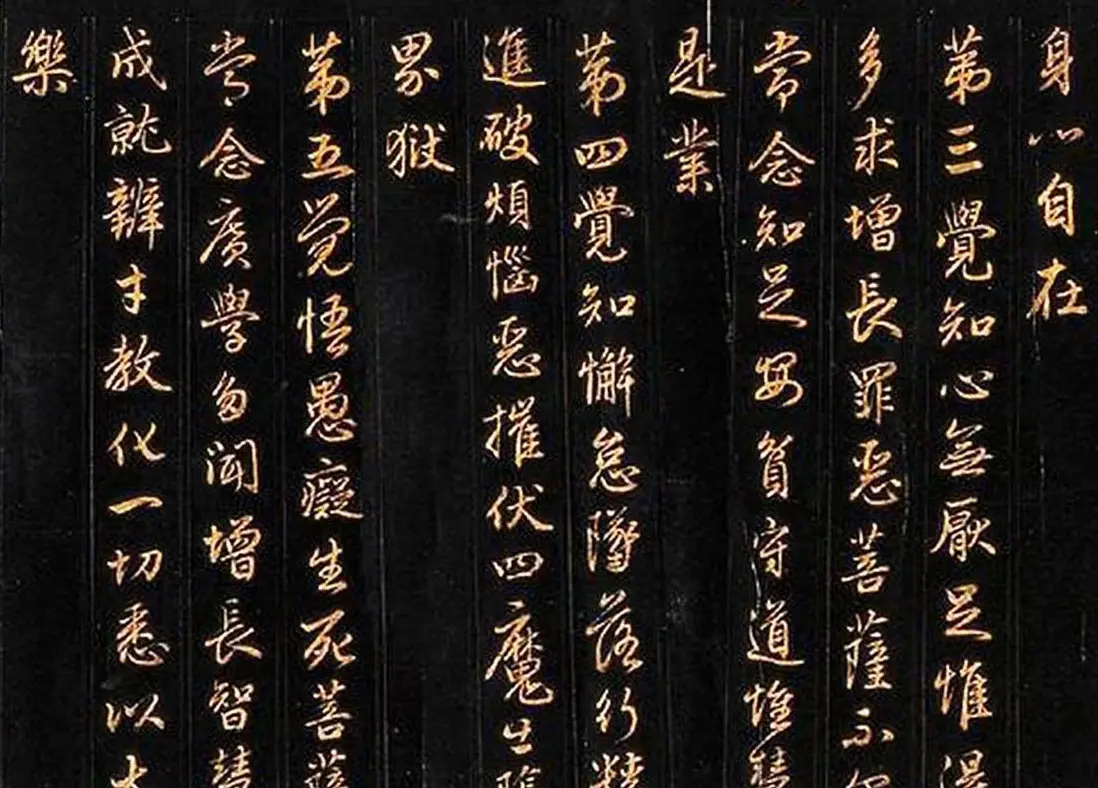 身心自在
第三覺知心無厭足惟得
多求增長罪惡菩薩不
常念知足安貧守道惟慧
是業
第四覺知懈怠墜落行精
進破煩惱惡摧伏四魔出陰
界獄
第五觉悟愚癡生死菩薩
常念廣學多聞增長智慧
成就辯才教化一切悉以大
樂